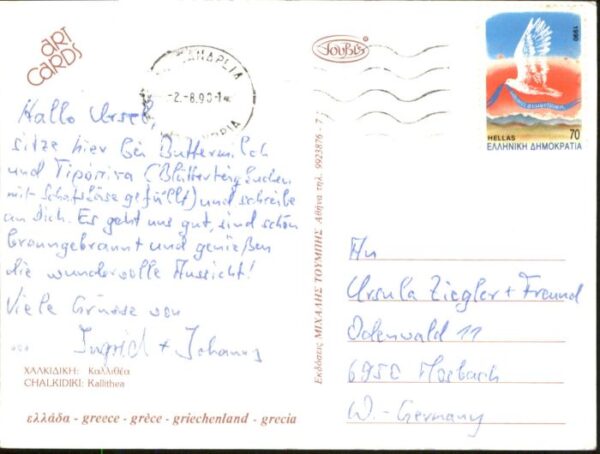 ART
CARDS
ΑΝΔΡΕΙΑ
-2.-8.90-14
ΟΡΙΑ
Τουβίς
1990
HELLAS 70
ΕΛΛΗΝΙΚΗ ΔΗΜΟΚΡΑΤΙΑ
Hallo Ursel,
sitze hier bei Buttermilch
und Tiropitta (Blätterteigkuchen
mit Schafskäse gefüllt) und schreibe
an Dich. Es geht uns gut, sind schön
braungebrannt und genießen
die wundervolle Aussicht!
Viele Grüsse von
Ingrid + Johannes
ΧΑΛΚΙΔΙΚΗ: Καλλιθέα
CHALKIDIKI: Kallithea
ελλάδα - greece - grèce - griechenland - grecia
Εκδόσεις ΜΙΧΑΛΗΣ ΤΟΥΜΠΗΣ Αθήνα τηλ. 9923876 - 7
An
Ursula Ziegler + Freund
Odenwald 11
6950 Mosbach
W.-Germany